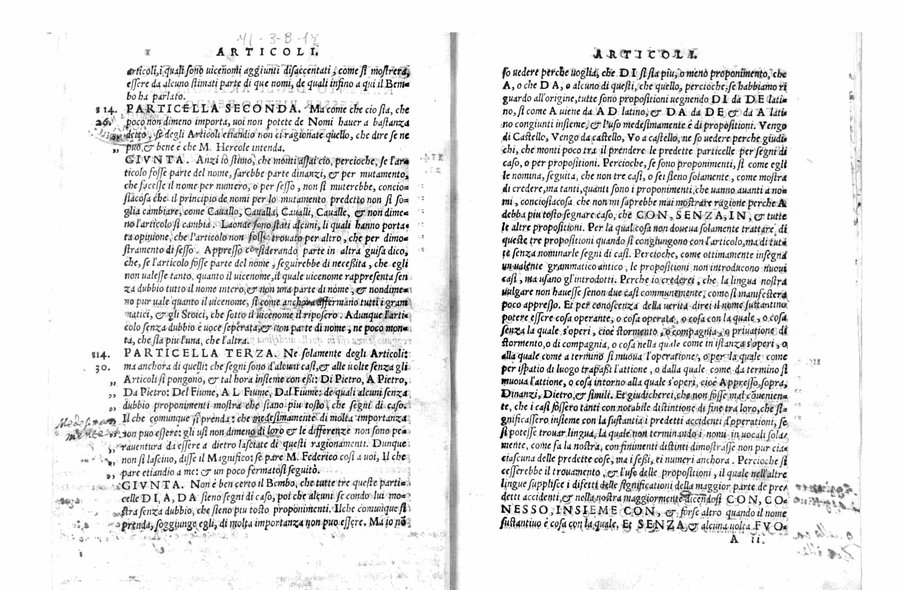 41-3-B-14
ARTICOLI.
articoli, i quali sono uicenomi aggiunti disaccentati, come si mostrerà,
essere da alcuno stimati parte di que nomi, de quali infino a qui il Bem-
bo ha parlato.
314. PARTICELLA SECONDA. Ma come che cio sia, che
26. poco non dimeno importa, uoi non potete de Nomi hauer a bastanza
detto, se degli Articoli etiandio non ci ragionate quello, che dire se ne
„ può, & bene è che M. Hercole intenda.
GIVNTA. Anzi io stimo, che monti assai cio, percioche, se l'ar-
ticolo fosse parte del nome, sarebbe parte dinanzi, & per mutamento,
che facesse il nome per numero, o per sesso, non si muterebbe, concio-
siacosa che il principio de nomi per lo mutamento predetto non si so-
glia cambiare, come Cauallo, Caualla, Caualli, Caualle, & non dime-
no l'articolo si cambia. Laonde sono stati alcuni, li quali hanno porta-
ta opinione, che l'articolo non fosse trouato per altro, che per dimo-
stramento di sesso. Appresso considerando parte in altra guisa dico,
che, se l'articolo fosse parte del nome, seguirebbe di necessità, che egli
non ualesse tanto, quanto il uicenome, il quale uicenome rappresenta sen
za dubbio tutto il nome intero, & non una parte di nome, & nondime-
no pur uale quanto il uicenome, si come anchora affermano tutti i gram
matici, & gli Stoici, che sotto il uicenome il riposero. Adunque l'arti-
colo senza dubbio è uoce seperata, & non parte di nome, ne poco mon-
ta, che sia l'una, che l'altra.
314. PARTICELLA TERZA. Ne solamente degli Articoli:
30. ma anchora di quelli: che segni sono d'alcuni casi, & alle uolte senza gli
„ Articoli si pongono, & tal hora insieme con essi: Di Pietro, A Pietro,
„ Da Pietro: Del Fiume, A L Fiume, Dal Fiume: de quali alcuni senza
„ dubbio proponimenti mostra che siano piu tosto, che segni di caso.
„ Il che comunque si prenda: che medesimamente di molta importanza
„ non puo essere: gli usi non dimeno di loro & le differenze non sono pe-
„ rauentura da essere a dietro lasciate di questi ragionamenti. Dunque
„ non si lascino, disse il Magnifico: se pare M. Federico cosi a uoi, Il che
„ pare etiandio a me: & un poco fermatosi seguitò.
GIVNTA. Non è ben certo il Bembo, che tutte tre queste parti-
celle DI, A, DA sieno segni di caso, poi che alcune se condo lui mo-
stra senza dubbio, che sieno piu tosto proponimenti. Ilche comunque si
prenda, soggiunge egli, di molta importanza non puo essere. Ma io nò
ARTICOLI.
so uedere perche uoglia, che DI si sia piu, o meno proponimento, che
A, o che DA, o alcuno di questi, che quello, percioche, se habbiamo ri
guardo all'origine, tutte sono propositioni uegnendo DI da DE lati-
no, si come A uiene da AD latino, & DA da DE & da A la
tino congiunti insieme, & l'uso medesimamente è di propositioni. Vengo
di Castello, Vengo da castello, Vo a castello, ne so uedere perche giudi-
chi, che monti poco tra il prendere le predette particelle per segni di
caso, o per propositioni. Percioche, se sono proponimenti, si come egli
le nomina, seguita, che non tre casi, o sei sieno solamente, come mostra
di credere, ma tanti, quanti sono i proponimenti, che uanno auanti a no-
mi, conciosiacosa che non mi saprebbe mai mostrare ragione perche A
debba piu tosto segnare caso, che CON, SENZA, IN, & tutte
le altre propositioni. Per la qual cosa non doueua solamente trattare di
queste tre propositioni quando si congiungono con l'articolo, ma di tut-
te senza nominarle segni di casi. Percioche, come ottimamente insegna
un ualente grammatico antico, le propositioni non introducono nuoui
casi, ma usano gl'introdotti. Perche io crederei, che la lingua nostra
uulgare non hauesse senon due casi communemente; come si manifesterà
poco appresso. Et per conoscenza della uerità direi il nome sustantiuo
potere essere cosa operante, o cosa operata, o cosa con la quale, o cosa
senza la quale s'operi, cioè stormento, o compagnia, o priuatione di
stormento, o di compagnia, o cosa nella quale come in istanza s'operi, o
alla quale come a termino si muoua l'operatione, o per la quale come
per ispatio di luogo trapassi l'attione, o dalla quale come da termino si
muoua l'attione, o cosa intorno alla quale s'operi, cioè Appresso, sopra,
Dinanzi, Dietro, & simili. Et giudicherei, che non fosse mal conuenen-
te, che i casi fossero tanti con notabile distintione di fine tra loro, che si-
gnificassero insieme con la sustantia i predetti accidenti d'operationi, se
si potesse trouar lingua, la quale non terminando i nomi in uocali sole,
come fa la nostra, con finimenti distinti dimostrasse non pur cia-
ciascuna delle predette cose, ma i sessi, et numeri anchora. Percioche si
cesserebbe il trouamento, & l'uso delle propositioni, il quale nell'altre
lingue supplisce i difetti delle significationi della maggior parte de pre-
detti accidenti, & nella nostra maggiormente dicendosi CON, CO-
NESSO, INSIEME CON, & forse altro quando il nome
sustantiuo è cosa con la quale, Et SENZA, & alcuna uolta FVO-
A II